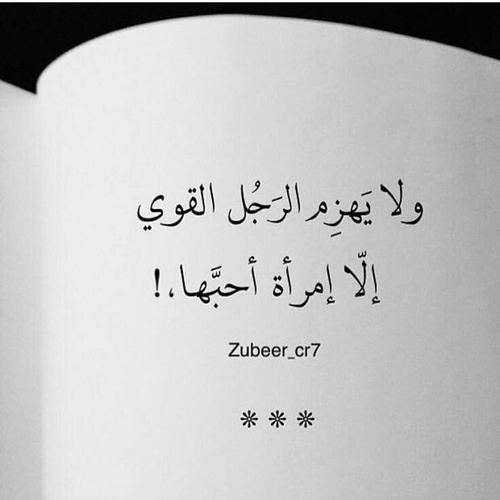 ولا يَهزِم الرَجُل القوي
إلّا إمرأة أحبَّها،!
Zubeer_cr7
❊ ❊ ❊